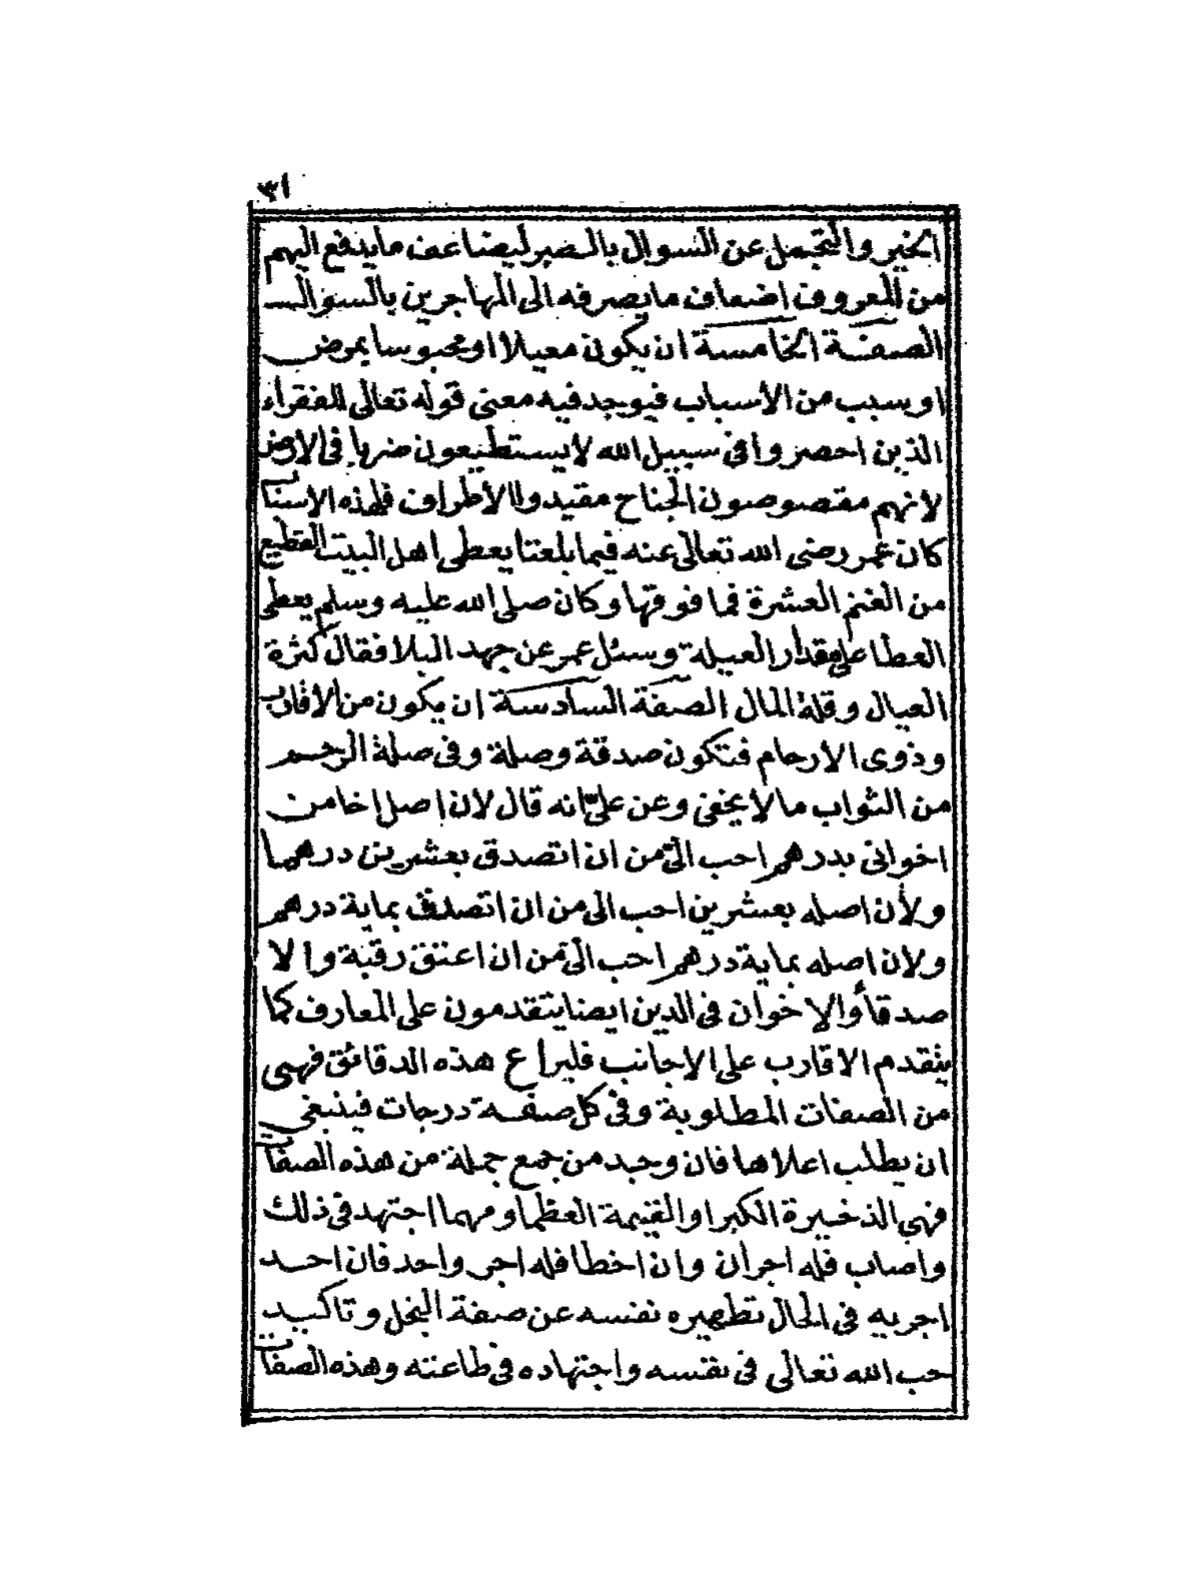 ٣١
الخير والتجمل عن السوال بالصبر ليضاعف ما يندفع اليهم
من المعروف اضعاف ما يصرفه الى المهاجرين بالسوال
الصفة الخامسة ان يكون معيلا او محبوسا بمرض
او سبب من الأسباب فيوجد فيه معنى قوله تعالى للفقراء
الذين احصروا في سبيل الله لا يستطيعون ضربا في الارض
لانهم مقصوصون الجناح مقيدوا الأطراف فلهذه الاسباب
كان عمر رضى الله تعالى عنه فيما بلغنا يعطى اهل البيت القطيع
من الغنم العشرة فما فوقها وكان صلى الله عليه وسلم يعطى
العطا على مقدار العيلة وسئل عمر عن جهد البلا فقال كثرة
العيال وقلة المال الصفة السادسة ان يكون من الاقارب
وذوى الارحام فتكون صدقة وصلة وفى صلة الرحم
من الثواب ما لا يخفى وعن علىّ انه قال لان اصل اخا من
اخوانى بدرهم احب الىّ من ان اتصدق بعشرين درهما
ولأن اصله بعشرين احب الى من ان اتصدق بماية درهم
ولان اصله بماية درهم احب الىّ من ان اعتق رقبة والا
صدقاُ والاخوان فى الدين ايضا يتقدمون على المعارف كما
يتقدم الاقارب على الاجانب فليراع هذه الدقائق فهى
من الصفات المطلوبة وفى كل صفة درجات فينبغى
ان يطلب اعلاها فان وجد من جمع جملة من هذه الصفات
فهى الذخيرة الكبرا والغنيمة العظما ومهما اجتهد فى ذلك
واصاب فله اجران وان اخطا فله اجر واحد فان احد
اجريه فى الحال تطهيره نفسه عن صفة البخل وتاكيد
حب الله تعالى فى نفسه واجتهاده فى طاعته وهذه الصفات